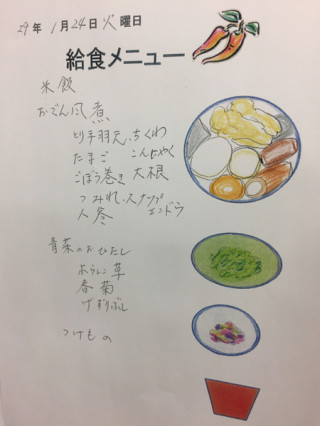 29年 1月24日火曜日
給食メニュー
米飯
おでん風煮
とり手羽元、ちくわ
たまご こんにゃく
ごぼう巻き 大根
つみれ、スナップエンドウ
人参
青菜のおひたし
ほうれん草
春菊
けずりぶし
つけもの